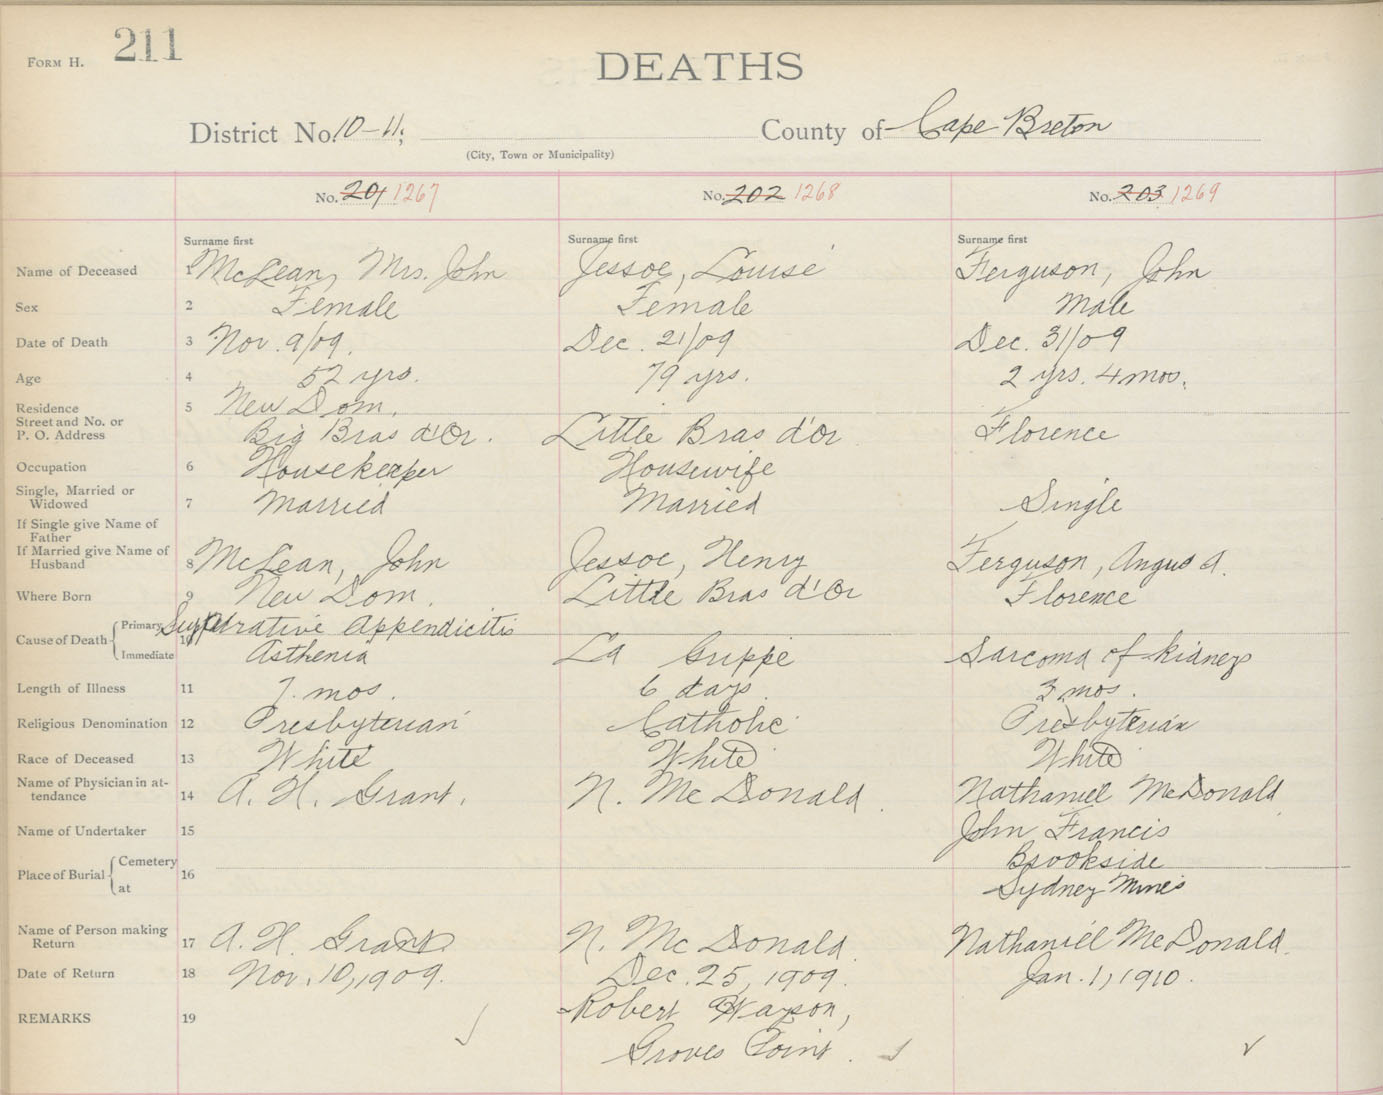 FORM H. 211
DEATHS
District No. 10-11; County of Cape Breton
(City, Town or Municipality)
No. 201 1267 No. 202 1268 No. 203 1269
Surname first Surname first Surname first
Name of Deceased 1 McLean, Mrs. John Jessoe, Louise Ferguson, John
Sex 2 Female Female Male
Date of Death 3 Nov. 9/09. Dec. 21/09 Dec. 31/09
Age 4 52 yrs. 79 yrs. 2 yrs. 4 mos.
Residence 5 New Dom.
Street and No. or
P. O. Address Big Bras d'Or. Little Bras d'Or Florence
Occupation 6 Housekeeper Housewife
Single, Married or
Widowed 7 Married Married Single
If Single give Name of
Father
If Married give Name of
Husband 8 McLean, John Jessoe, Henry Ferguson, Angus A.
Where Born 9 New Dom. Little Bras d'Or Florence
Primary Suppurative Appendicitis
Cause of Death 10
Immediate Asthenia La Grippe Sarcoma of kidneys
Length of Illness 11 7 mos. 6 days. 3 mos.
Religious Denomination 12 Presbyterian Catholic Presbyterian
Race of Deceased 13 White White White
Name of Physician in at-
tendance 14 A. H. Grant. N. McDonald. Nathaniel McDonald
Name of Undertaker 15 John Francis
Cemetery Brookside
Place of Burial 16
at Sydney Mines
Name of Person making
Return 17 A. H. Grant N. McDonald. Nathaniel McDonald.
Date of Return 18 Nov. 10, 1909. Dec. 25, 1909. Jan. 1, 1910.
REMARKS 19 Robert Wayson,
Groves Point.